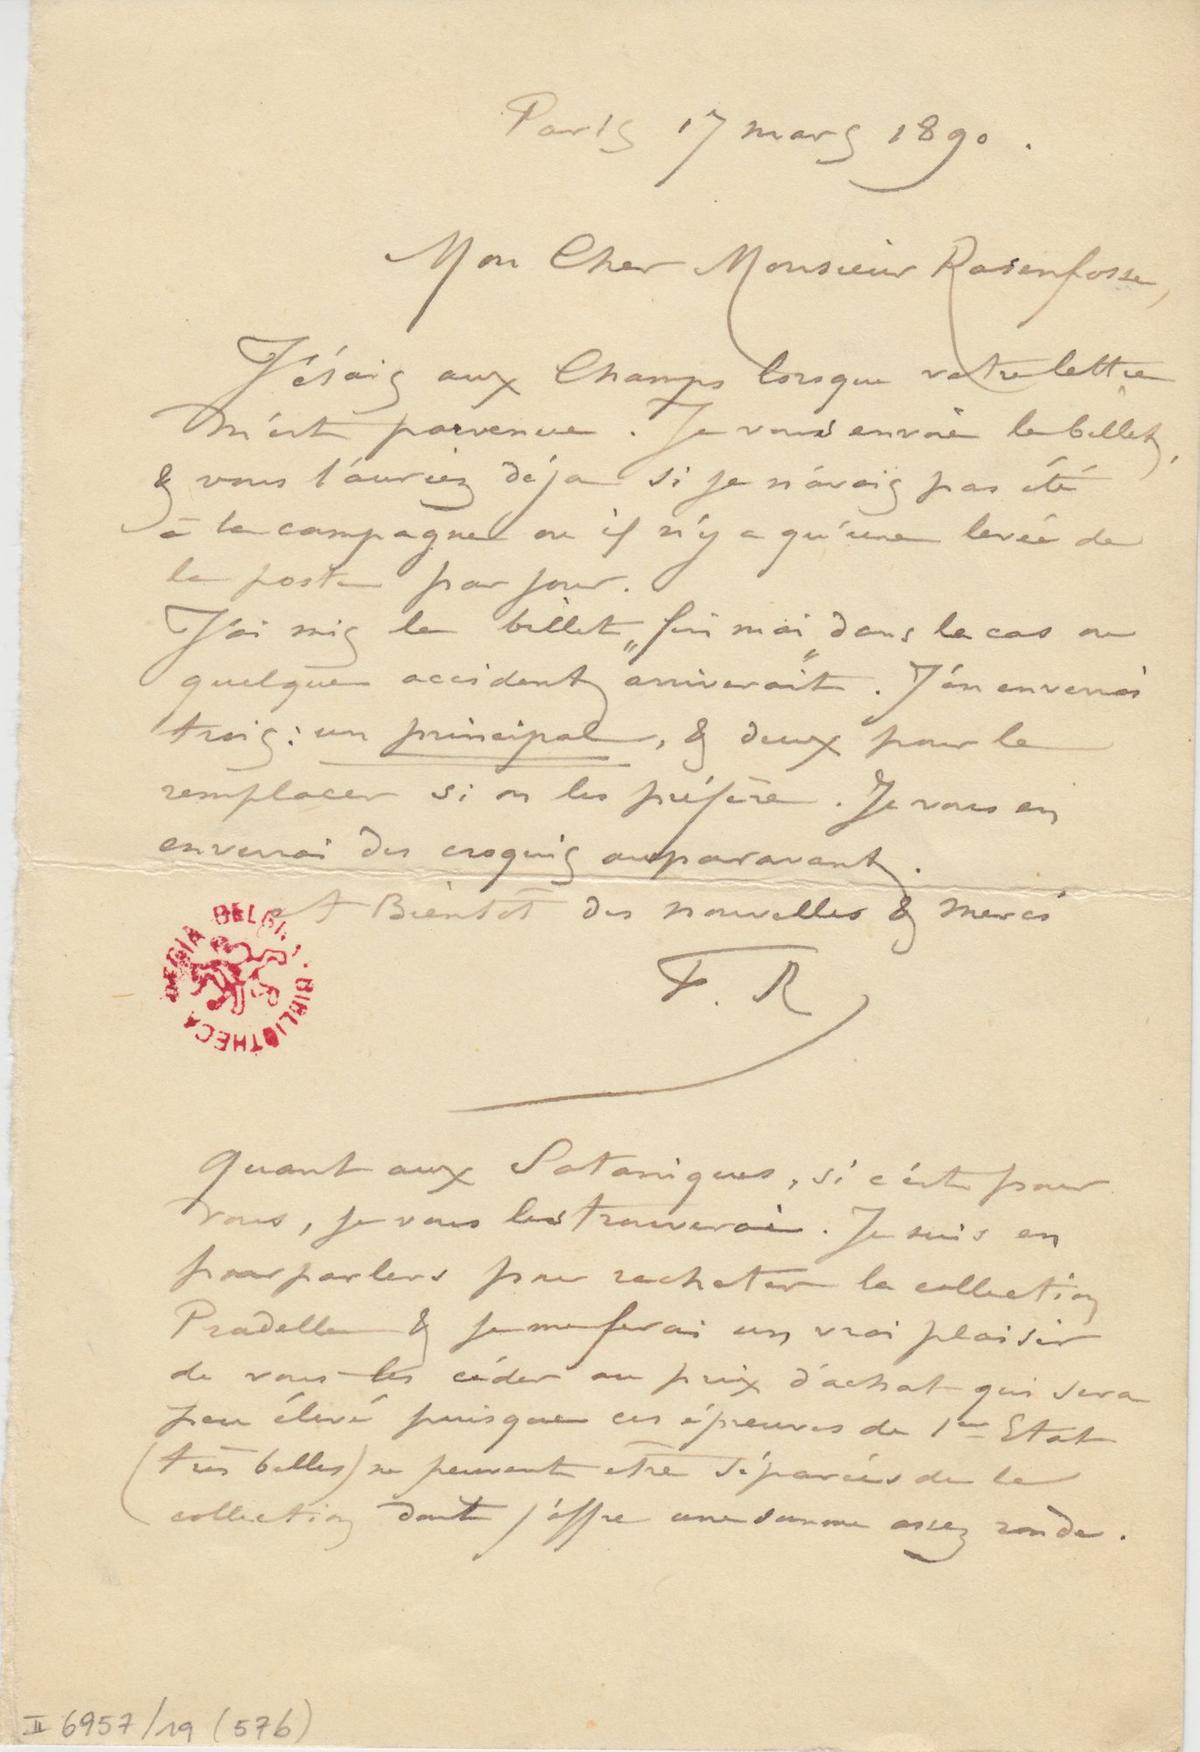 Paris 17 mars 1890.
Mon Cher Monsieur Rasenfosse,
J'étais aux Champs lorsque votre lettre
m'est parvenue. Je vous envoie le billet,
& vous l'auriez déja si je n'avais pas été
à la campagne ou il n'y a qu'une levée de
la poste par jour.
J'ai mis le billet „fini moi" dans le cas ou
quelque accident arriverait. J'en enverrai
trois: un principal, & deux pour le
remplacer si on les préfère. Je vous en
enverrai des croquis auparavant.
et A Bientôt des nouvelles & merci
F. R
REGIA BELGICA BIBLIOTHECA
Quant aux Sataniques, si c'est pour
vous, je vous les trouverai. Je suis en
pourparlers pour racheter la collection
Pradelle & je me ferai un vrai plaisir
de vous les céder au prix d'achat qui sera
peu élevé puisque ces épreuves de 1er Etat
(très belles) ne peuvent être séparées de la
collection dont j'offre une somme assez ronde.
II 6957/19 (576)